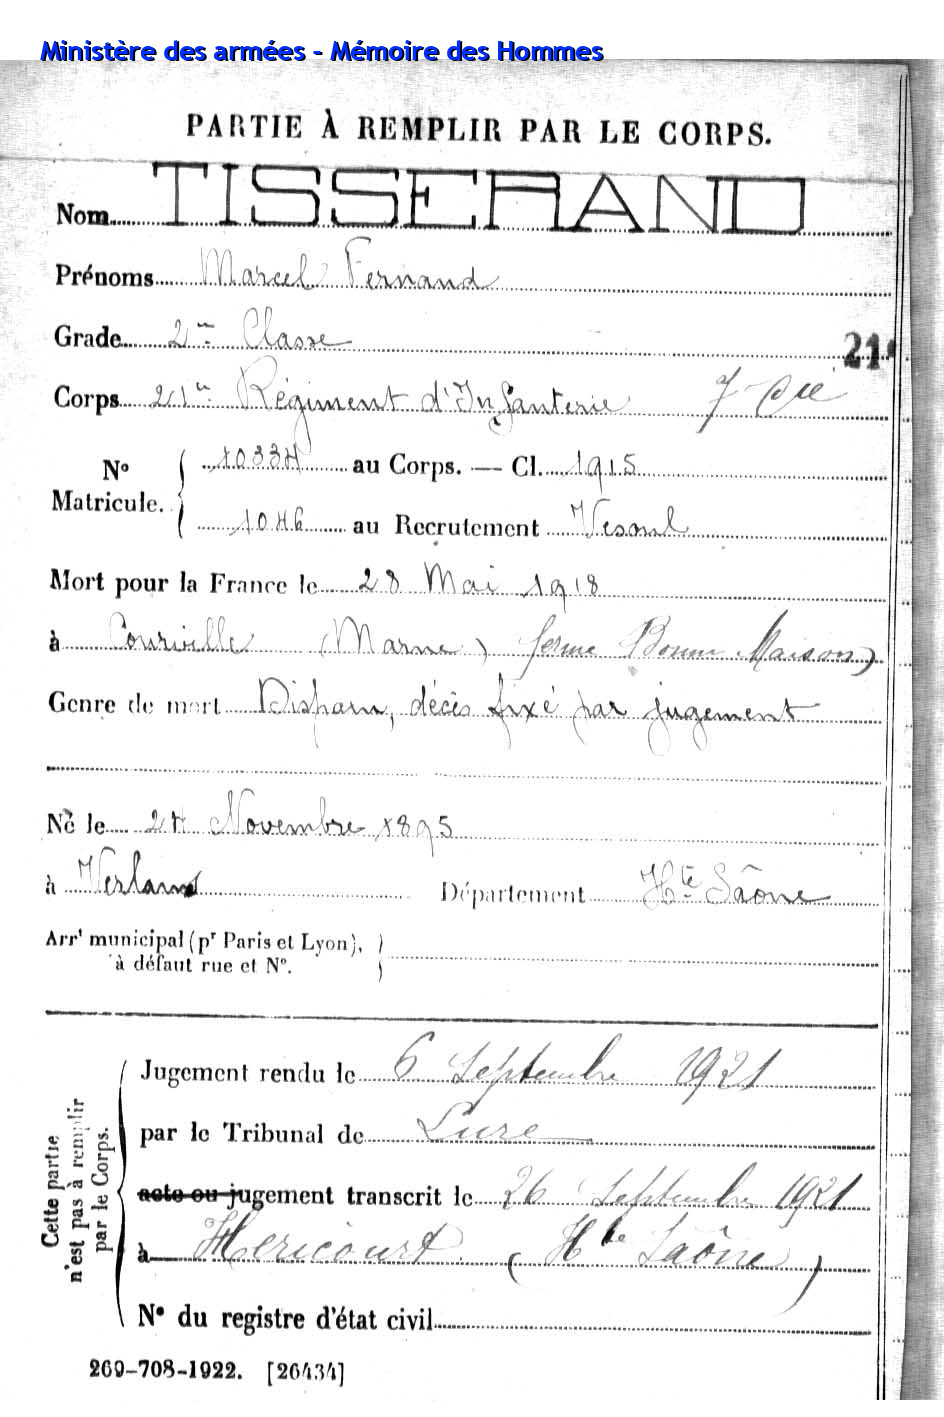 Ministère des armées - Mémoire des Hommes
PARTIE À REMPLIR PAR LE CORPS.
Nom TISSERAND
Prénoms Marcel Fernand
Grade 2me Classe
21
Corps 21e Régiment d'Infanterie 7 Cie
No Matricule. 10334 au Corps. — Cl. 1915
1046 au Recrutement Vesoul
Mort pour la France le 28 Mai 1918
à Courville (Marne) ferme Bonne Maison)
Genre de mort Disparu, décès fixé par jugement
Né le 24 Novembre 1895
à Verlans Département Hte Saône
Arrt municipal (pr Paris et Lyon),
à défaut rue et No.
Cette partie n'est pas à remplir par le Corps.
Jugement rendu le 6 Septembre 1921
par le Tribunal de Lure
acte ou jugement transcrit le 26 Septembre 1921
à Héricourt (Hte Saône)
No du registre d'état civil
269-708-1922. [26434]